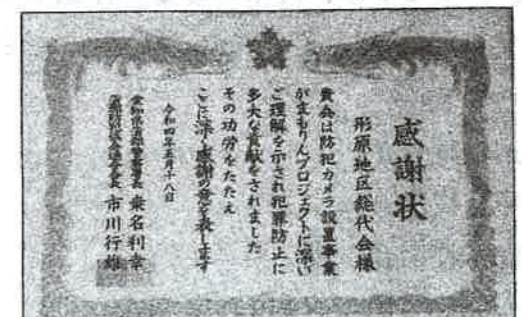 感謝状
形原地区総代会様
貴会は防犯カメラ設置事業
がまもりんプロジェクトに深い
ご理解を示され犯罪防止に
多大な貢献をされました
その功労をたたえ
ここに深く感謝の意を表します
令和四年五月十八日
愛知県蒲郡警察署長 桑名利幸
市川行雄